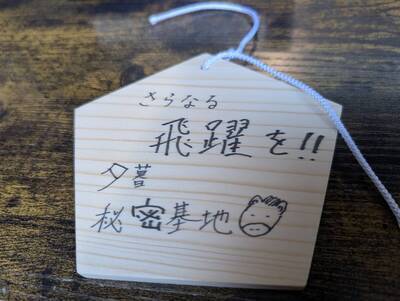 さらなる
飛躍を!!
夕暮
秘密基地